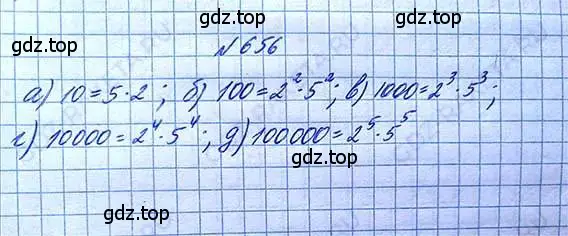 gdz.top
№ 656
gdz.top
а) 10 = 5 · 2 ; б) 100 = 2² · 5² ; в) 1000 = 2³ · 5³ ;
г) 10000 = 2⁴ · 5⁴ ; д) 100000 = 2⁵ · 5⁵
gdz.top
gdz.top